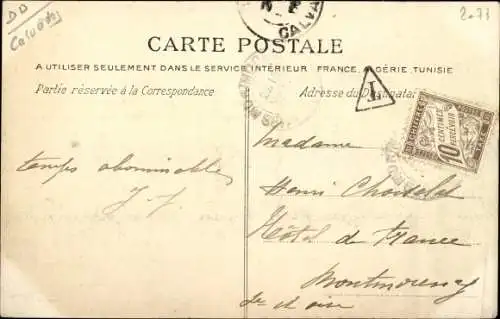 DD
Calvados
2.073
N F
CALVA
CARTE POSTALE
A UTILISER SEULEMENT DANS LE SERVICE INTÉRIEUR FRANCE, ALGÉRIE, TUNISIE
Partie réservée à la Correspondance
Adresse du Destinatai
T
CHIFFRE TAXE
10 CENTIMES A PERCEVOIR
Madame
temps abominable
Henri
J. J.
Hôtel de France
Montmorency
Sne et oise